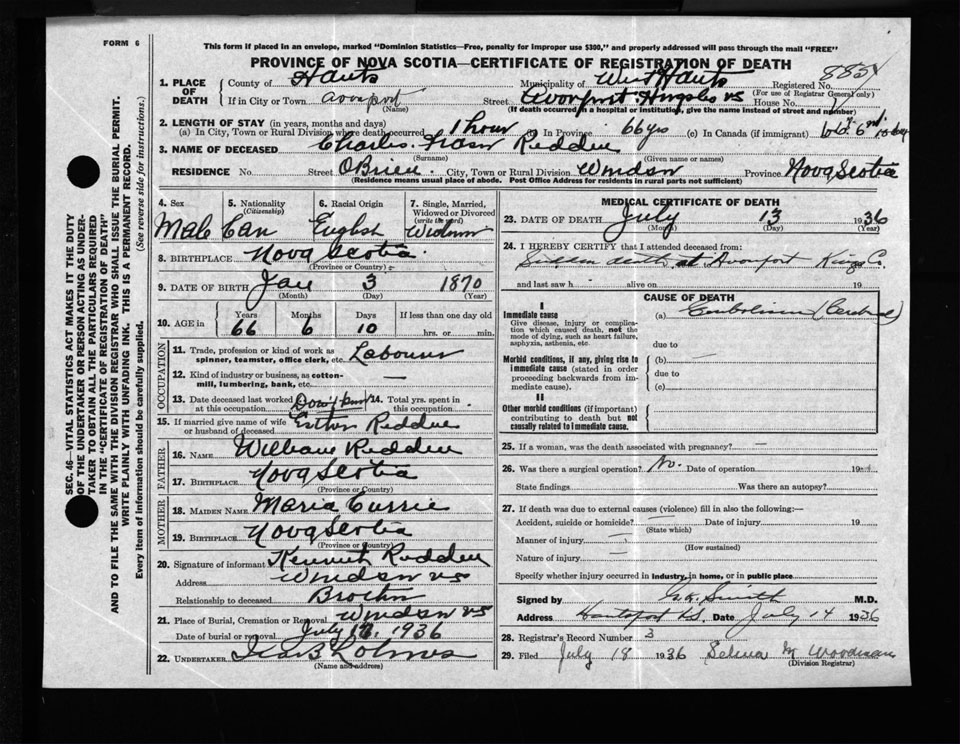 FORM 6
This form if placed in an envelope, marked "Dominion Statistics—Free, penalty for improper use $300," and properly addressed will pass through the mail "FREE"
PROVINCE OF NOVA SCOTIA—CERTIFICATE OF REGISTRATION OF DEATH
1. PLACE OF DEATH
County of Hants Municipality of West Hants Registered No.
(For use of Registrar General only)
If in City or Town Avonport Street Avonport House No.
(Name) (If death occurred in a hospital or institution, give name instead of street and number)
2. LENGTH OF STAY (in years, months and days)
(a) In City, Town or Rural Division where death occurred 1 hour (b) In Province 66 yrs (c) In Canada (if immigrant)
3. NAME OF DECEASED Charles Redden
(Surname) (Given name or names)
RESIDENCE No. Street OBrien City, Town or Rural Division Windsor Province Nova Scotia
(Residence means usual place of abode. Post Office Address for residents in rural parts not sufficient)
4. Sex 5. Nationality (Citizenship) 6. Racial Origin 7. Single, Married, Widowed or Divorced (write the word)
Male Can English Widower
8. BIRTHPLACE Nova Scotia
(Province or Country)
9. DATE OF BIRTH Jan 3 1870
(Month) (Day) (Year)
10. AGE in Years Months Days If less than one day old
66 6 10 hrs. or min.
OCCUPATION
11. Trade, profession or kind of work as spinner, teamster, office clerk, etc. Labourer
12. Kind of industry or business, as cotton-mill, lumbering, bank, etc. —
13. Date deceased last worked at this occupation
14. Total yrs. spent in this occupation
15. If married give name of wife or husband of deceased Redden
FATHER
16. NAME William Redden
17. BIRTHPLACE Nova Scotia
(Province or Country)
MOTHER
18. MAIDEN NAME Maria Currie
19. BIRTHPLACE Nova Scotia
(Province or Country)
20. Signature of informant Kenneth Redden
Address Windsor NS
Relationship to deceased Brother
21. Place of Burial, Cremation or Removal Windsor NS
Date of burial or removal July 1936
22. UNDERTAKER
(Name and address)
MEDICAL CERTIFICATE OF DEATH
23. DATE OF DEATH July 13 1936
(Month) (Day) (Year)
24. I HEREBY CERTIFY that I attended deceased from:
Sudden death at Avonport Kings Co.
and last saw h alive on 19
CAUSE OF DEATH
I
Immediate cause
Give disease, injury or complication which caused death, not the mode of dying, such as heart failure, asphyxia, asthenia, etc.
(a) Embolism (Cerebral)
due to
Morbid conditions, if any, giving rise to immediate cause (stated in order proceeding backwards from immediate cause).
(b) —
due to
(c)
II
Other morbid conditions (if important) contributing to death but not causally related to immediate cause.
25. If a woman, was the death associated with pregnancy? —
26. Was there a surgical operation? No. Date of operation 19
State findings Was there an autopsy?
27. If death was due to external causes (violence) fill in also the following:—
Accident, suicide or homicide? — Date of injury 19
(State which)
Manner of injury —
(How sustained)
Nature of injury —
Specify whether injury occurred in industry, in home, or in public place
Signed by Smith M.D.
Address Hantsport N.S. Date July 14 1936
28. Registrar's Record Number 3
29. Filed July 18 1936 Selina M Woodman
(Division Registrar)
SEC. 46—VITAL STATISTICS ACT MAKES IT THE DUTY
OF THE UNDERTAKER OR PERSON ACTING AS UNDER-
TAKER TO OBTAIN ALL THE PARTICULARS REQUIRED
IN THE "CERTIFICATE OF REGISTRATION OF DEATH"
AND TO FILE THE SAME WITH THE DIVISION REGISTRAR WHO SHALL ISSUE THE BURIAL PERMIT.
WRITE PLAINLY WITH UNFADING INK. THIS IS A PERMANENT RECORD.
Every item of information should be carefully supplied. (See reverse side for instructions.)